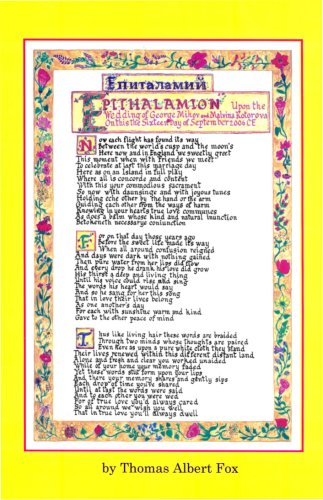 Епиталамий
"EPITHALAMION" Upon the
Wedding of George Mihov and Malvina Kotorova
On this the Sixteenth Day of September 2006 CE
Now each flight has found its way
Between the world's cusp and the moon's
Here now and in England we sweetly greet
This moment when with Friends we meet
To celebrate at last this marriage day
Here as on an Island in full play
Where all is concorde and content
With this your commodious sacrament
So now with daunsinge and with joyous tunes
Holding eche other by the hand or the arm
Guiding each other from the ways of harm
Knowing in your hearts true love communes
As does a psalm whose kind and natural munction
Betokeneth necessarye conjunction
For on that day those years ago
Before the sweet life made its way
When all around confusion reigned
And days were dark with nothing gained
Then pure water from her lips did flow
And every drop he drank his love did grow
His thirst a deep and living thing
Until his voice could rise and sing
The words his heart would say
And so he sang for her this song
That in love their lives belong
As one another's day
For each with sunshine warm and kind
Gave to the other peace of mind
Thus like living hair these words are braided
Through two minds whose thoughts are paired
Even here as upon a pure white cloth they stand
Their lives renewed within this different distant land
Alone and fresh and clear you worked unaided
While of your home your memory faded
Yet those words still form upon your lips
And there your memory shares and gently sips
Each drop of time you've shared
Until at last the words were said
And to each other you were wed
For of true love you'd always cared
So all around we wish you well
That in true love you'll always dwell
by Thomas Albert Fox